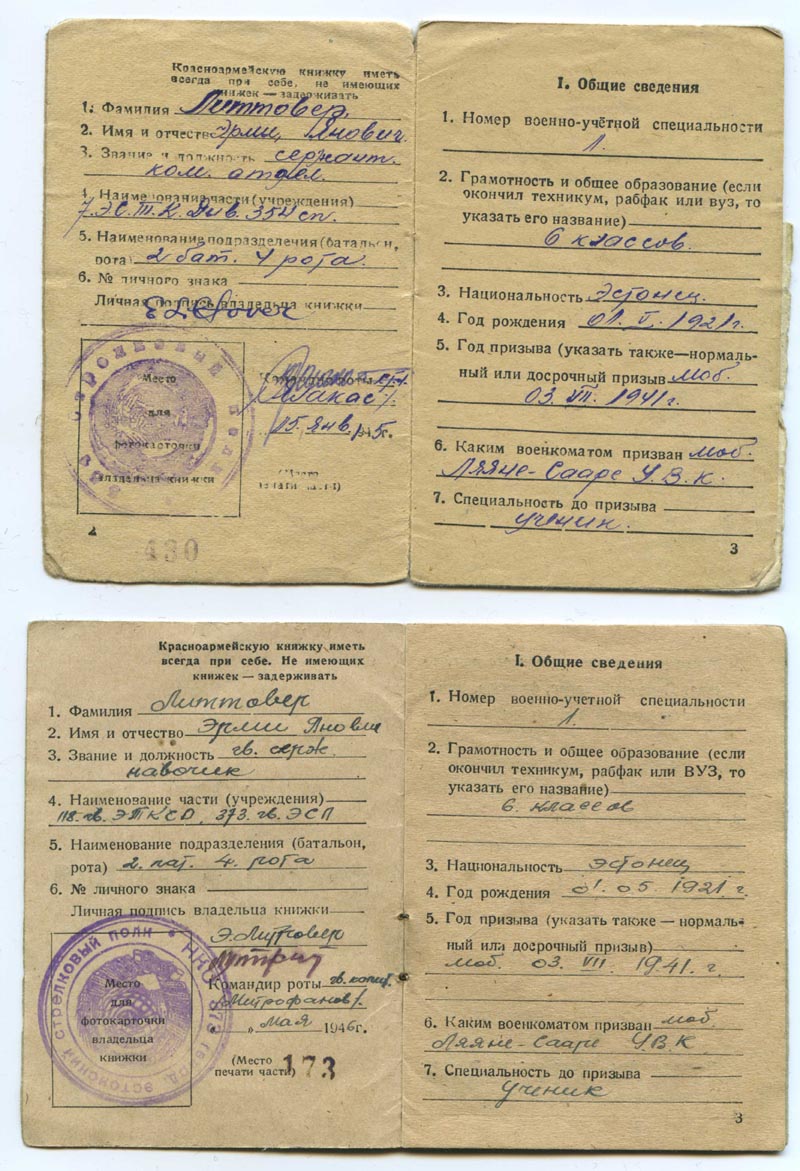 Красноармейскую книжку иметь
всегда при себе, не имеющих
книжек — задерживать
1. Фамилия Литтовер
2. Имя и отчество Эрми, Янович.
3. Звание и должность сержант.
ком. отдел.
4. Наименование части (учреждения)
7. Э.С.Т.К. Див. 354 сп.
5. Наименование подразделения (батальон,
рота) 2 бат. 4 рота.
6. № личного знака
Личная подпись владельца книжки
Место
для
фотокарточки
владельца книжки
Командир роты
15. янв.
(Место
печати части)
2
430
I. Общие сведения
1. Номер военно-учётной специальности
1.
2. Грамотность и общее образование (если
окончил техникум, рабфак или вуз, то
указать его название)
6 классов.
3. Национальность Эстонец.
4. Год рождения 01. V. 1921 г.
5. Год призыва (указать также—нормаль-
ный или досрочный призыв моб.
03. VII. 1941 г.
6. Каким военкоматом призван моб.
Ляяне-Сааре У.В.К.
7. Специальность до призыва
ученик.
3
Красноармейскую книжку иметь
всегда при себе. Не имеющих
книжек — задерживать
1. Фамилия Литтовер
2. Имя и отчество Эрми Янович
3. Звание и должность гв. серж.
навочик
4. Наименование части (учреждения)
118. гв. ЭТКСД, 373. гв. ЭСП
5. Наименование подразделения (батальон,
рота) 2. пат. 4. рота
6. № личного знака
Личная подпись владельца книжки
Э. Литтовер
Командир роты гв. капит.
/Митрофанов/.
" " мая 1946 г.
Место
для
фотокарточки
владельца
книжки
(Место
печати части)
173
ЭСТОНСКИЙ СТРЕЛКОВЫЙ ПОЛК
I. Общие сведения
1. Номер военно-учетной специальности
1.
2. Грамотность и общее образование (если
окончил техникум, рабфак или ВУЗ, то
указать его название)
6. классов
3. Национальность эстонец
4. Год рождения 01. 05 1921 г.
5. Год призыва (указать также — нормаль-
ный или досрочный призыв)
моб. 03. VII. 1941. г.
6. Каким военкоматом призван моб.
Ляяне-Сааре У.В.К
7. Специальность до призыва
ученик
3